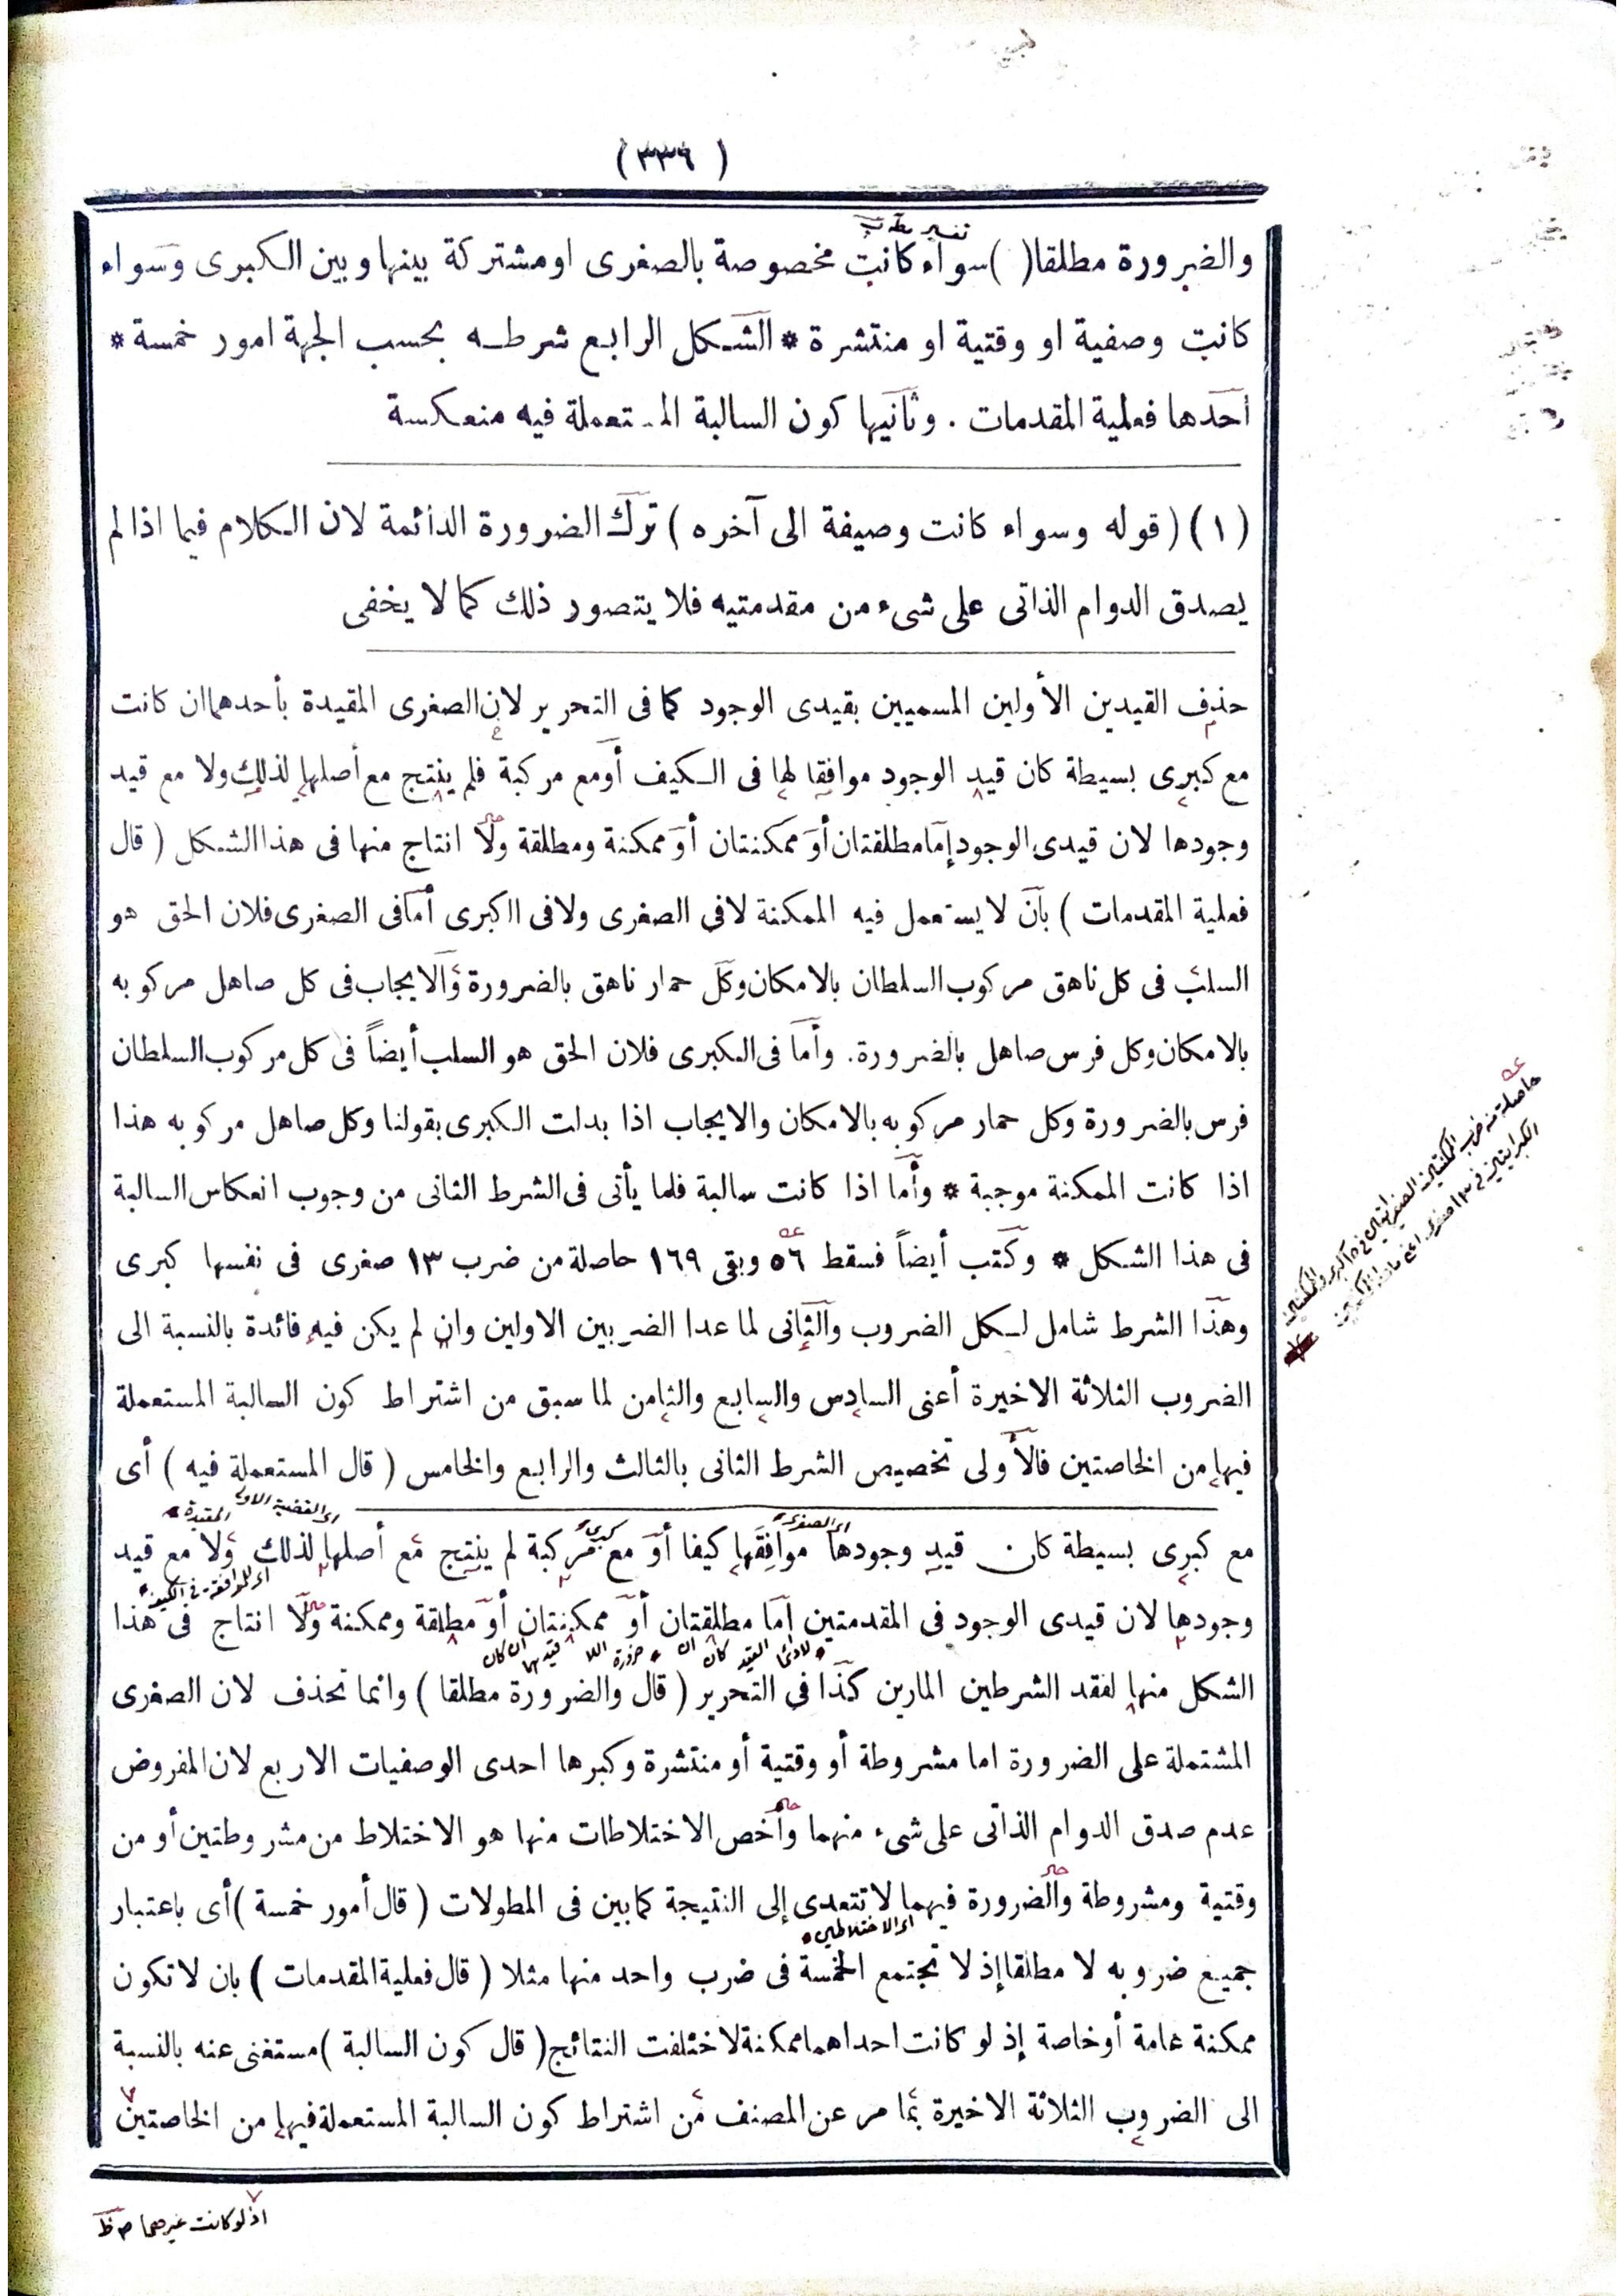 ( ٣٣٦ )
والضرورة مطلقا( )سواء كانت مخصوصة بالصغرى او مشتركة بينها وبين الكبرى وسواء
كانت وصفية او وقتية او منتشرة * الشكل الرابع شرطه بحسب الجهة امور خمسة *
أحدها فعلية المقدمات . وثانيها كون السالبة المستعملة فيه منعكسة
(١) ( قوله وسواء كانت وصيفة الى آخره ) ترك الضرورة الدائمة لان الكلام فيما اذا لم
يصدق الدوام الذاتى على شىء من مقدمتيه فلا يتصور ذلك كما لا يخفى
حذف القيدين الأولين المسميين بقيدى الوجود كما فى التحرير لان الصغرى المقيدة بأحدهما ان كانت
مع كبرى بسيطة كان قيد الوجود موافقا لها فى الكيف أومع مركبة فلم ينتج مع أصلها لذلك ولا مع قيد
وجودها لان قيدى الوجود إما مطلقتان أو ممكنتان أو ممكنة ومطلقة ولا انتاج منها فى هذا الشكل ( قال
فعلية المقدمات ) بأن لا يستعمل فيه الممكنة لافى الصغرى ولافى الكبرى أما فى الصغرى فلان الحق هو
السلب فى كل ناهق مركوب السلطان بالامكان وكل حمار ناهق بالضرورة والايجاب فى كل صاهل مركوبه
بالامكان وكل فرس صاهل بالضرورة. وأما فى الكبرى فلان الحق هو السلب أيضاً فى كل مركوب السلطان
فرس بالضرورة وكل حمار مركوبه بالامكان والايجاب اذا بدلت الكبرى بقولنا وكل صاهل مركوبه هذا
اذا كانت الممكنة موجبة * وأما اذا كانت سالبة فلما يأتى فى الشرط الثانى من وجوب انعكاس السالبة
فى هذا الشكل * وكتب أيضاً فسقط ٥٦ وبقى ١٦٩ حاصلة من ضرب ١٣ صغرى فى نفسها كبرى
وهذا الشرط شامل لكل الضروب والثانى لما عدا الضربين الاولين وان لم يكن فيه فائدة بالنسبة الى
الضروب الثلاثة الاخيرة أعنى السادس والسابع والثامن لما سبق من اشتراط كون السالبة المستعملة
فيها من الخاصتين فالأولى تخصيص الشرط الثانى بالثالث والرابع والخامس ( قال المستعملة فيه ) أى
مع كبرى بسيطة كان قيد وجودها موافقها كيفا أو مع مركبة لم ينتج مع أصلها لذلك ولا مع قيد
وجودها لان قيدى الوجود فى المقدمتين إما مطلقتان أو ممكنتان أو مطلقة وممكنة ولا انتاج فى هذا
الشكل منها لفقد الشرطين المارين كذا فى التحرير ( قال والضرورة مطلقا ) وانما تحذف لان الصغرى
المشتملة على الضرورة اما مشروطة أو وقتية أو منتشرة وكبرها احدى الوصفيات الاربع لان المفروض
عدم صدق الدوام الذاتى على شىء منهما وأخص الاختلاطات منها هو الاختلاط من مشروطتين أو من
وقتية ومشروطة والضرورة فيهما لا تتعدى إلى النتيجة كما بين فى المطولات ( قال أمور خمسة )أى باعتبار
جميع ضروبه لا مطلقا إذ لا تجتمع الخمسة فى ضرب واحد منها مثلا ( قال فعلية المقدمات ) بان لا تكون
ممكنة عامة أو خاصة إذ لو كانت احداهما ممكنة لاختلفت النتائج( قال كون السالبة )مستغنى عنه بالنسبة
الى الضروب الثلاثة الاخيرة بما مر عن المصنف من اشتراط كون السالبة المستعملة فيها من الخاصتين
اذ لو كانت غيرهما